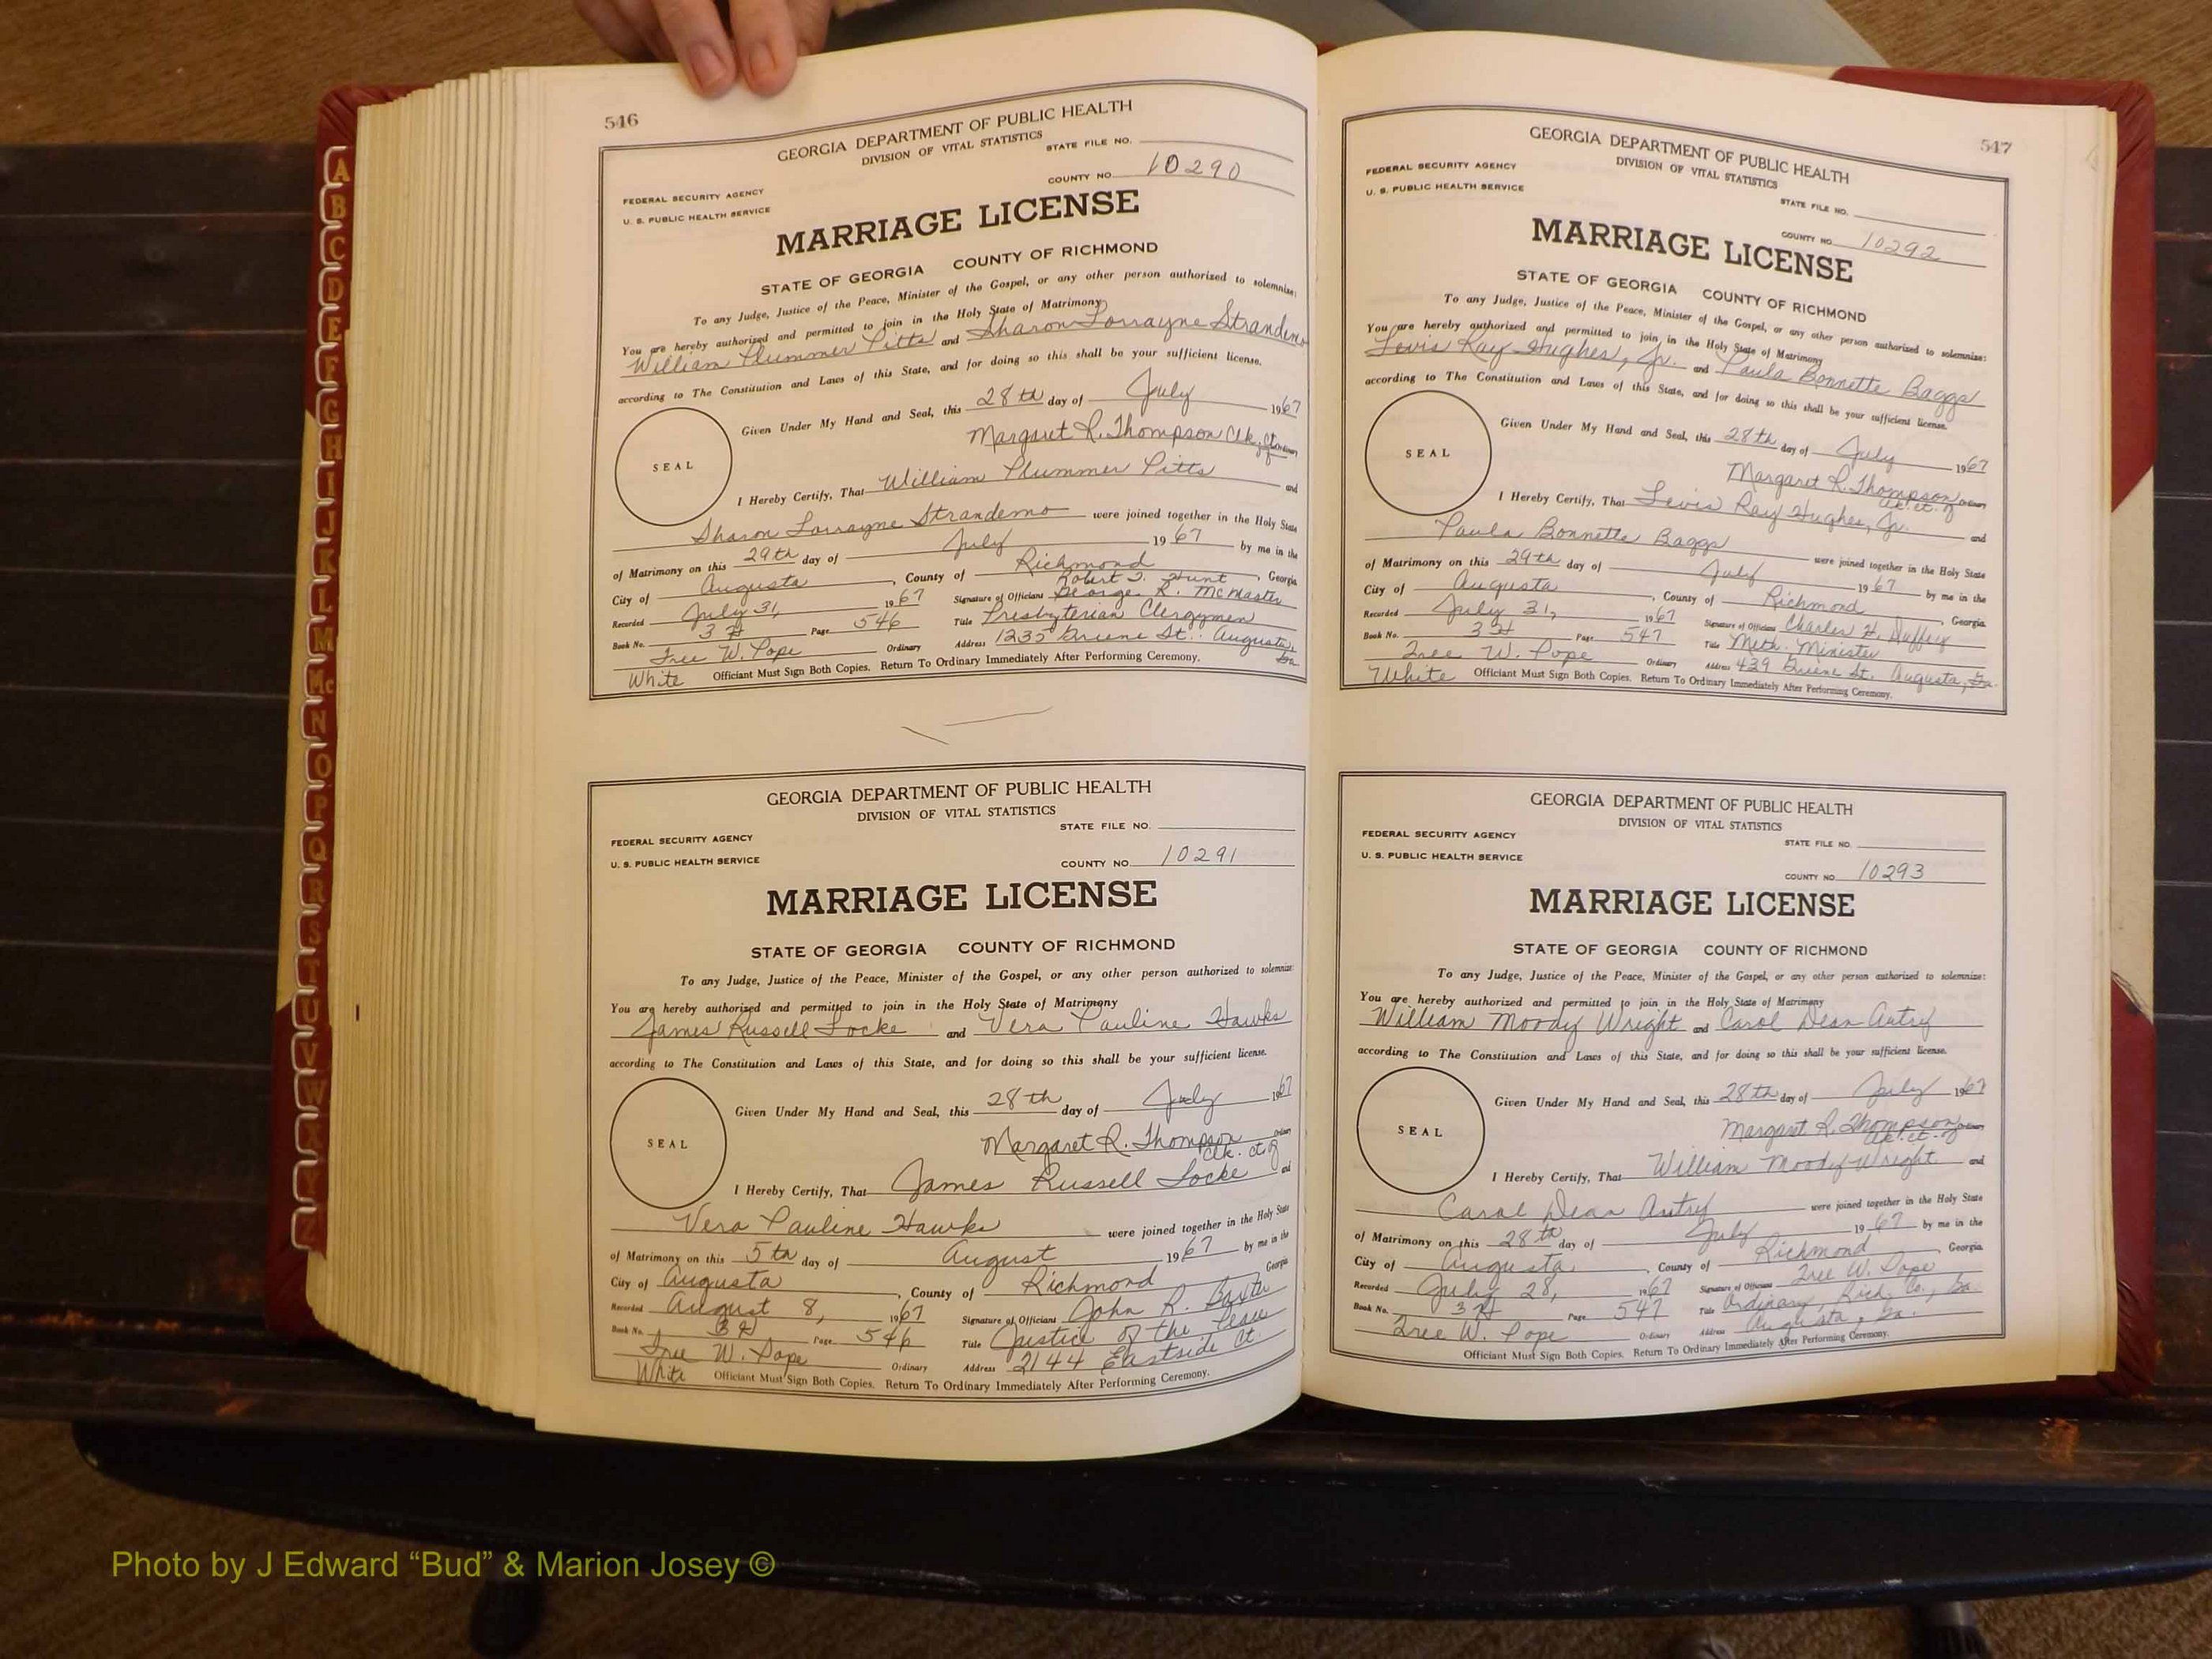 546
GEORGIA DEPARTMENT OF PUBLIC HEALTH
DIVISION OF VITAL STATISTICS
STATE FILE NO.
FEDERAL SECURITY AGENCY
U. S. PUBLIC HEALTH SERVICE
COUNTY NO. 10290
MARRIAGE LICENSE
STATE OF GEORGIA COUNTY OF RICHMOND
To any Judge, Justice of the Peace, Minister of the Gospel, or any other person authorized to solemnize:
You are hereby authorized and permitted to join in the Holy State of Matrimony
William Plummer Pitts and Sharon Lorrayne Strandemo
according to The Constitution and Laws of this State, and for doing so this shall be your sufficient license.
Given Under My Hand and Seal, this 28th day of July 1967
Margaret R. Thompson Clk. Ct. of Ordinary
SEAL
I Hereby Certify, That William Plummer Pitts and
Sharon Lorrayne Strandemo were joined together in the Holy State
of Matrimony on this 29th day of July 1967 by me in the
City of Augusta, County of Richmond, Georgia
Robert T. Hunt
Recorded July 31, 1967 Signature of Officiant George R. McMaster
Book No. 3 Page 546 Title Presbyterian Clergymen
Tree W. Pope Ordinary Address 1235 Greene St. Augusta, Ga
White Officiant Must Sign Both Copies. Return To Ordinary Immediately After Performing Ceremony.
GEORGIA DEPARTMENT OF PUBLIC HEALTH
DIVISION OF VITAL STATISTICS
STATE FILE NO.
FEDERAL SECURITY AGENCY
U. S. PUBLIC HEALTH SERVICE
COUNTY NO. 10291
MARRIAGE LICENSE
STATE OF GEORGIA COUNTY OF RICHMOND
To any Judge, Justice of the Peace, Minister of the Gospel, or any other person authorized to solemnize:
You are hereby authorized and permitted to join in the Holy State of Matrimony
James Russell Locke and Vera Pauline Hawks
according to The Constitution and Laws of this State, and for doing so this shall be your sufficient license.
Given Under My Hand and Seal, this 28th day of July 1967
Margaret R. Thompson Ordinary
Clk. ct of
SEAL
I Hereby Certify, That James Russell Locke and
Vera Pauline Hawks were joined together in the Holy State
of Matrimony on this 5th day of August 1967 by me in the
City of Augusta, County of Richmond Georgia
Recorded August 8, 1967 Signature of Officiant John R. Baxter
Book No. 3 Page 546 Title Justice of the Peace
Tree W. Pope Ordinary Address 2144 Eastside Ct.
White Officiant Must Sign Both Copies. Return To Ordinary Immediately After Performing Ceremony.
547
GEORGIA DEPARTMENT OF PUBLIC HEALTH
DIVISION OF VITAL STATISTICS
FEDERAL SECURITY AGENCY
U. S. PUBLIC HEALTH SERVICE
STATE FILE NO.
COUNTY NO. 10292
MARRIAGE LICENSE
STATE OF GEORGIA COUNTY OF RICHMOND
To any Judge, Justice of the Peace, Minister of the Gospel, or any other person authorized to solemnize:
You are hereby authorized and permitted to join in the Holy State of Matrimony
Lewis Ray Hughes, Jr. and Paula Bonnette Baggs
according to The Constitution and Laws of this State, and for doing so this shall be your sufficient license.
Given Under My Hand and Seal, this 28th day of July 1967
Margaret R. Thompson Ordinary
Clk. ct. of
SEAL
I Hereby Certify, That Lewis Ray Hughes, Jr. and
Paula Bonnette Baggs were joined together in the Holy State
of Matrimony on this 29th day of July 1967 by me in the
City of Augusta, County of Richmond, Georgia
Recorded July 31, 1967 Signature of Officiant Charles H. Duffey
Book No. 3 Page 547 Title Meth. Minister
Tree W. Pope Ordinary Address 439 Greene St. Augusta, Ga.
White Officiant Must Sign Both Copies. Return To Ordinary Immediately After Performing Ceremony.
GEORGIA DEPARTMENT OF PUBLIC HEALTH
DIVISION OF VITAL STATISTICS
FEDERAL SECURITY AGENCY
STATE FILE NO.
U. S. PUBLIC HEALTH SERVICE
COUNTY NO. 10293
MARRIAGE LICENSE
STATE OF GEORGIA COUNTY OF RICHMOND
To any Judge, Justice of the Peace, Minister of the Gospel, or any other person authorized to solemnize:
You are hereby authorized and permitted to join in the Holy State of Matrimony
William Moody Wright and Carol Dean Autry
according to The Constitution and Laws of this State, and for doing so this shall be your sufficient license.
Given Under My Hand and Seal, this 28th day of July 1967
Margaret R. Thompson Ordinary
Clk. ct. of
SEAL
I Hereby Certify, That William Moody Wright and
Carol Dean Autry were joined together in the Holy State
of Matrimony on this 28th day of July 1967 by me in the
City of Augusta, County of Richmond, Georgia
Recorded July 28, 1967 Signature of Officiant Tree W. Pope
Book No. 3 Page 547 Title Ordinary, Rich. Co., Ga.
Tree W. Pope Ordinary Address Augusta, Ga.
Officiant Must Sign Both Copies. Return To Ordinary Immediately After Performing Ceremony.
A
B
C
D
E
F
G
H
I
J
K
L
M
Mc
N
O
P
Q
R
S
T
U
V
W
X
Y
Z
Photo by J Edward “Bud” & Marion Josey ©